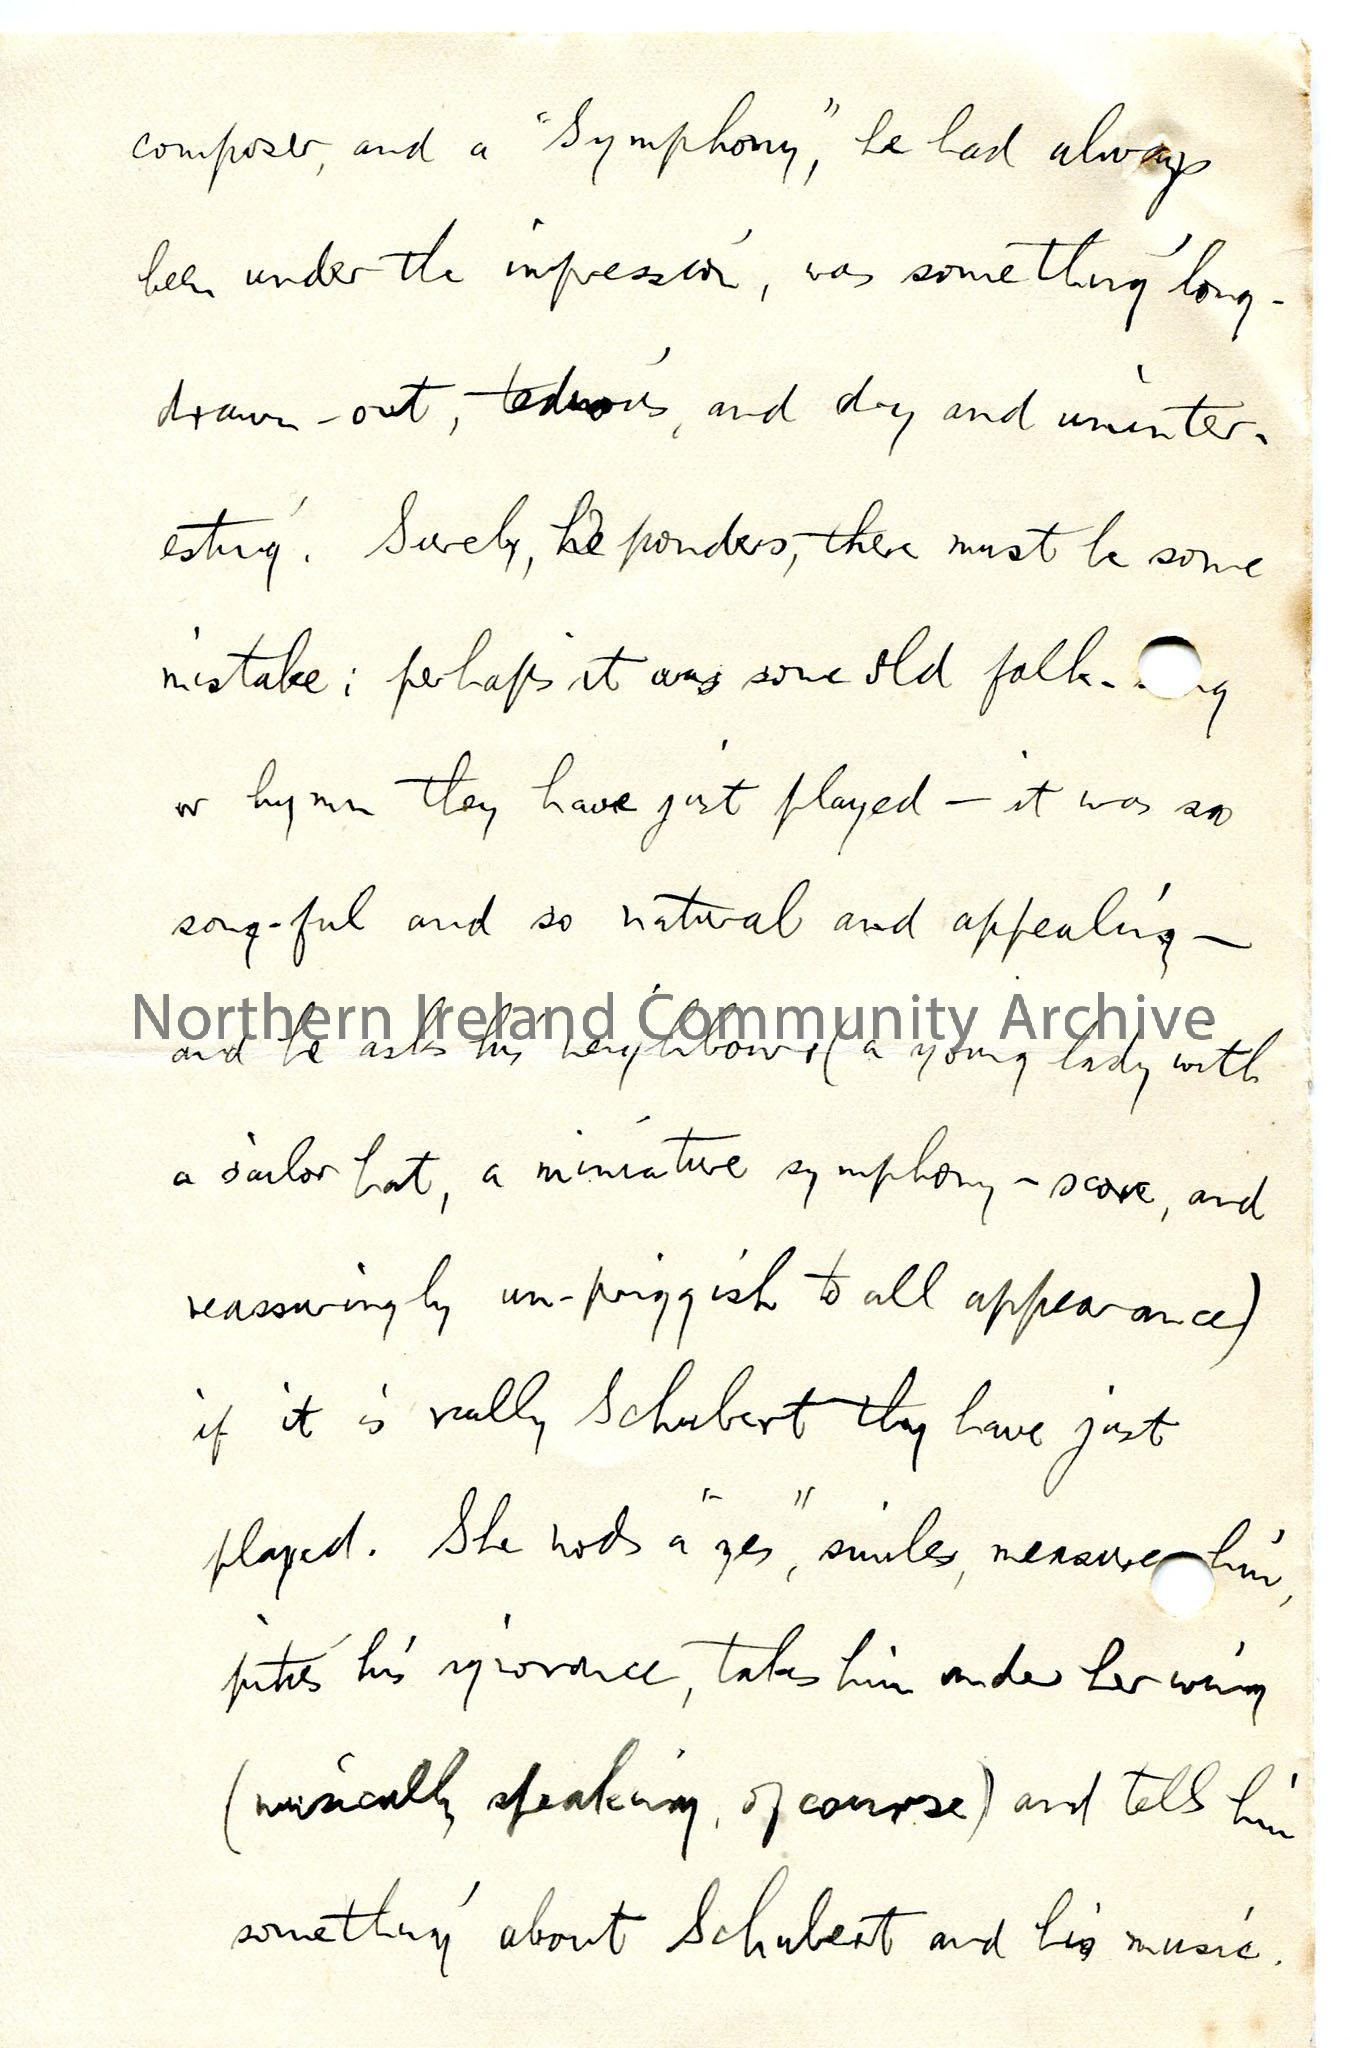 composer, and a "Symphony," he had always
been under the impression, was something long-
drawn-out, tedious, and dry and uninter-
esting. Surely, he ponders, there must be some
mistake; perhaps it was some old folk-
or hymn they have just played — it was so
song-ful and so natural and appealing —
Northern Ireland Community Archive
and he asks his neighbour (a young lady with
a sailor hat, a miniature symphony-score, and
reassuringly un-priggish to all appearance)
if it is really Schubert they have just
played. She nods a "yes", smiles, measures him,
pities his ignorance, takes him under her wing
(musically speaking, of course) and tells him
something about Schubert and his music.